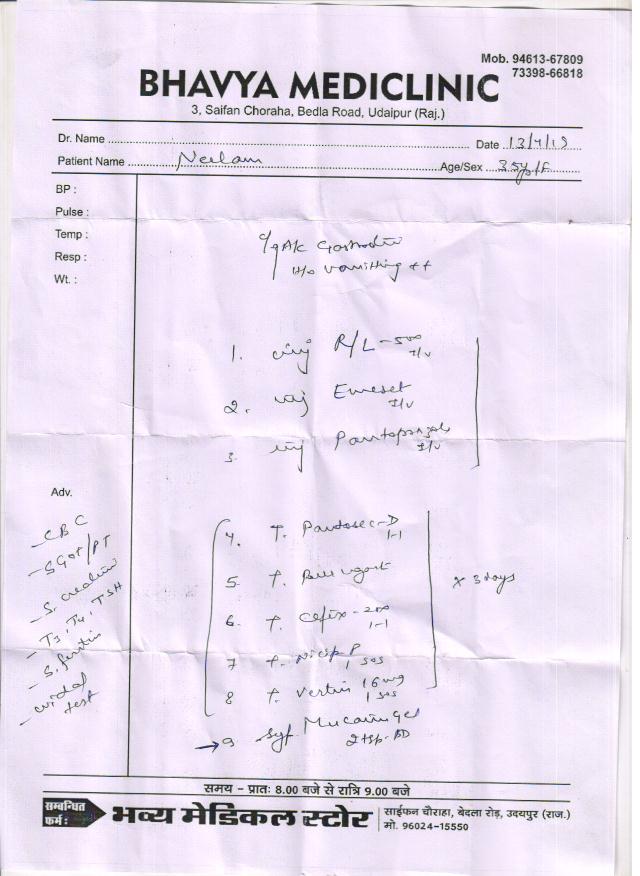 Mob. 94613-67809
73398-66818
BHAVYA MEDICLINIC
3, Saifan Choraha, Bedla Road, Udaipur (Raj.)
Dr. Name Date 13/4/19
Patient Name Neelam Age/Sex 35y/F
BP :
Pulse :
Temp :
Resp :
Wt. :
H/o vomitting ++
1. inj R/L - 500
I/v
2. inj Emeset
I/v
3. inj Pantoprazole
I/v
Adv.
- CBC
- SGOT/PT
- S. creatinine
- T3, T4, TSH
- S. ferritin
- widal test
4. T. Pantosec-D
1-1
5. T.
6. T. Cefix-200
1-1
7 T. Nicip P
1 sos
8 T. Vertin 16 mg
1 sos
x 3 days
→ 9 syp. Mucaine gel
2 tsp. BD
समय – प्रातः 8.00 बजे से रात्रि 9.00 बजे
सम्बन्धित फर्म : भव्य मेडिकल स्टोर
साईफन चौराहा, बेदला रोड़, उदयपुर (राज.)
मो. 96024-15550